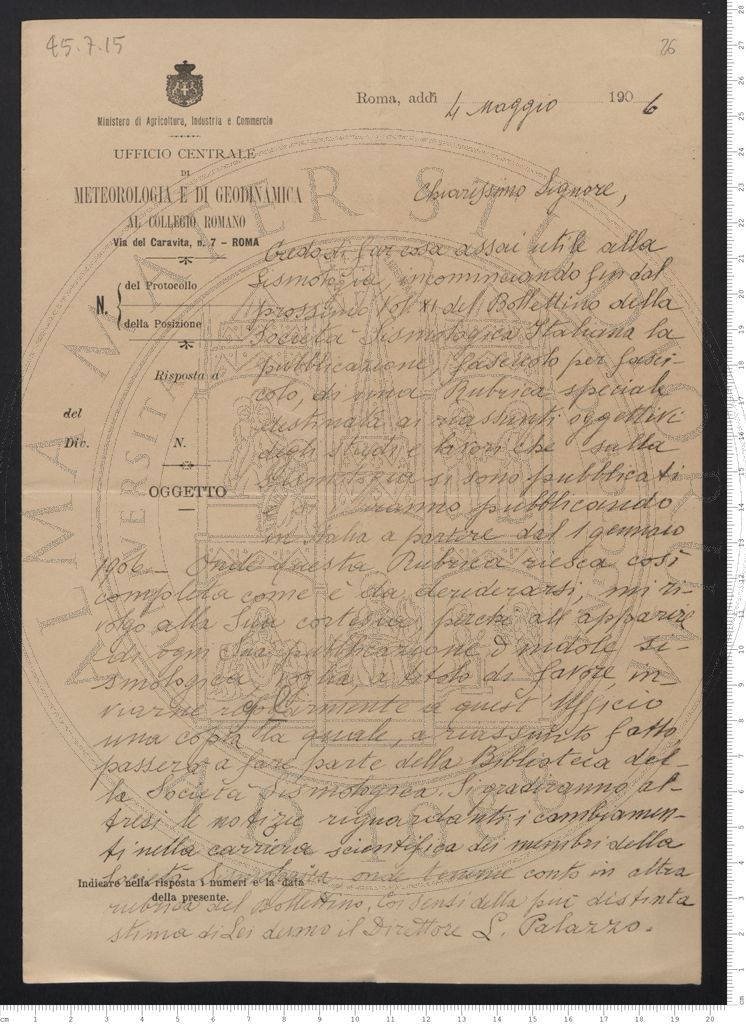 45.7.15
26
Ministero di Agricoltura, Industria e Commercio
UFFICIO CENTRALE
DI
METEOROLOGIA E DI GEODINAMICA
AL COLLEGIO ROMANO
Via del Caravita, n. 7 – ROMA
N.
del Protocollo
della Posizione
Risposta a
del
Div. N.
OGGETTO
Roma, addì 4 Maggio 1906
Chiarissimo Signore,
Credo di far cosa assai utile alla
Sismologia, incominciando fin dal
prossimo Vol. XI del Bollettino della
Società Sismologica Italiana la
pubblicazione, fascicolo per fasci-
colo, di una Rubrica speciale
destinata ai riassunti oggettivi
degli studi e lavori che sulla
Sismologia si sono pubblicati
e si andranno pubblicando
in Italia a partire dal 1 gennaio
1906. – Onde questa Rubrica riesca così
completa come è da desiderarsi, mi ri-
volgo alla Sua cortesia perché all'apparire
di ogni Sua pubblicazione d'indole si-
smologica voglia, a titolo di favore, in-
viarne regolarmente a quest'Ufficio
una copia la quale, a riassunto fatto,
passerà a fare parte della Biblioteca del-
la Società Sismologica. Si gradiranno al-
tresì le notizie riguardanti i cambiamen-
ti nella carriera scientifica dei membri della
Società Sismologica, onde tenerne conto in altra
rubrica del Bollettino. Coi sensi della più distinta
stima di Lei devmo il Direttore L. Palazzo.
Indicare nella risposta i numeri e la data
della presente.
ALMA MATER STUDIORUM
UNIVERSITÀ